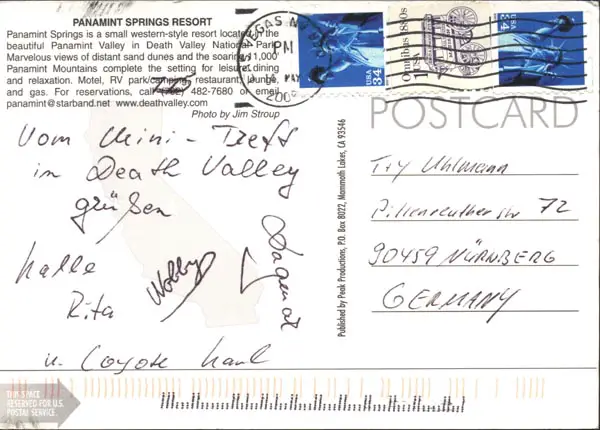 PANAMINT SPRINGS RESORT
Panamint Springs is a small western-style resort located in the
beautiful Panamint Valley in Death Valley National Park.
Marvelous views of distant sand dunes and the soaring 11,000'
Panamint Mountains complete the setting for leisure dining
and relaxation. Motel, RV park/camping, restaurant, lounge
and gas. For reservations, call 482-7680 or email
panamint@starband.net www.deathvalley.com
Photo by Jim Stroup
VEGAS
PM
MAY
USA
34
Omnibus 1880s
1c USA
USA
34
POSTCARD
Vom Mini-Treff
in Death Valley
grüßen
Kalle
Rita
Wobby
Dagmar
u. Coyote Karl
Published by Peak Productions, P.O. Box 8022, Mammoth Lakes, CA 93546
T+Y Uhlmann
Pillenreuther Str 72
90459 NÜRNBERG
GERMANY
THIS SPACE
RESERVED FOR U.S.
POSTAL SERVICE.